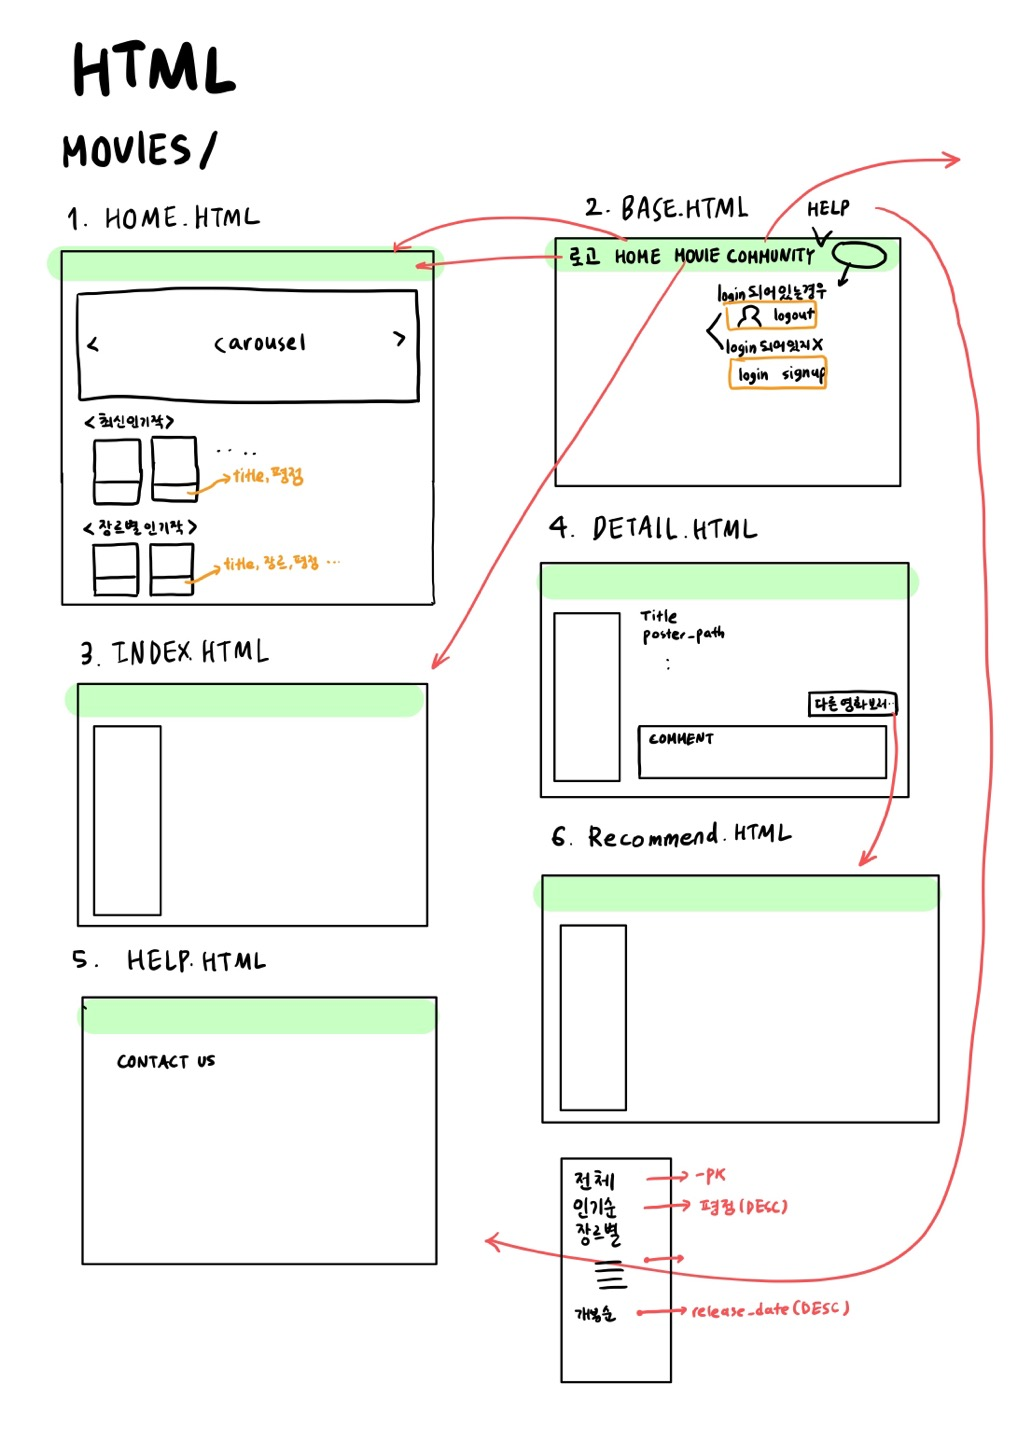 HTML
MOVIES/
1. HOME.HTML
< carousel >
<최신인기작>
.. ..
title, 평점
<장르별 인기작>
title, 장르, 평점 ...
2. BASE.HTML
HELP
로고 HOME MOVIE COMMUNITY
login 되어있는경우
logout
login 되어있지 X
login signup
3. INDEX.HTML
4. DETAIL.HTML
Title
poster_path
:
다른 영화 보러..
COMMENT
5. HELP.HTML
CONTACT US
6. Recommend.HTML
전체 → -PK
인기순 → 평점(DESC)
장르별
개봉순 → release_date(DESC)